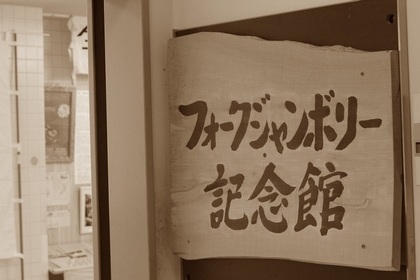 フォークジャンボリー
記念館